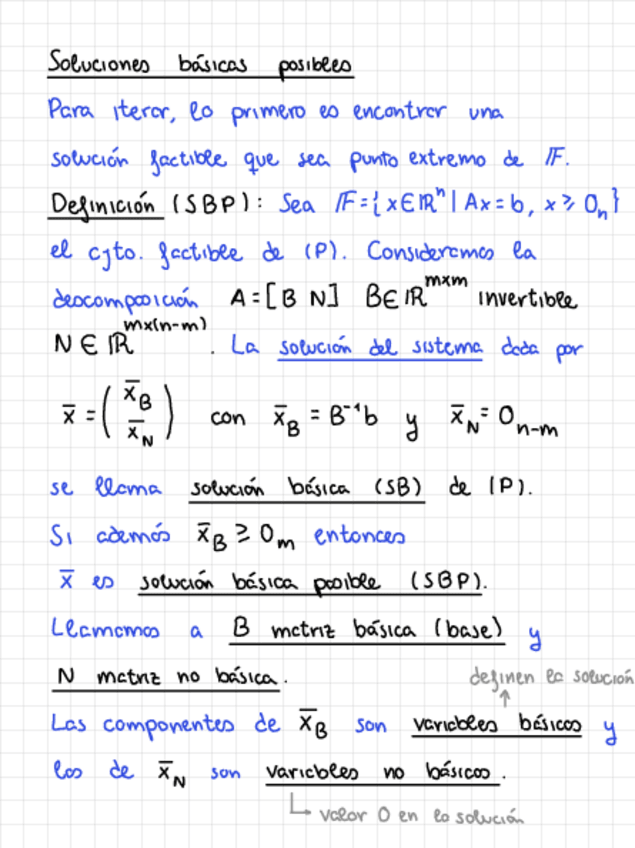 Soluciones básicas posibles
Para iterar, lo primero es encontrar una
solución factible que sea punto extremo de F.
Definición (SBP): Sea F={x∈ℝⁿ | Ax=b, x≥0ₙ}
el cjto. factible de (P). Consideramos la
descomposición A=[B N] B∈ℝ^{m×m} invertible
N∈ℝ^{m×(n-m)}. La solución del sistema dada por
x̄ = (x̄_B x̄_N) con x̄_B = B⁻¹b y x̄_N = 0_{n-m}
se llama solución básica (SB) de (P).
Si además x̄_B ≥ 0_m entonces
x̄ es solución básica posible (SBP).
Llamamos a B matriz básica (base) y
N matriz no básica.
definen la solución
↑
Las componentes de x̄_B son variables básicas y
las de x̄_N son variables no básicas.
↳ valor 0 en la solución